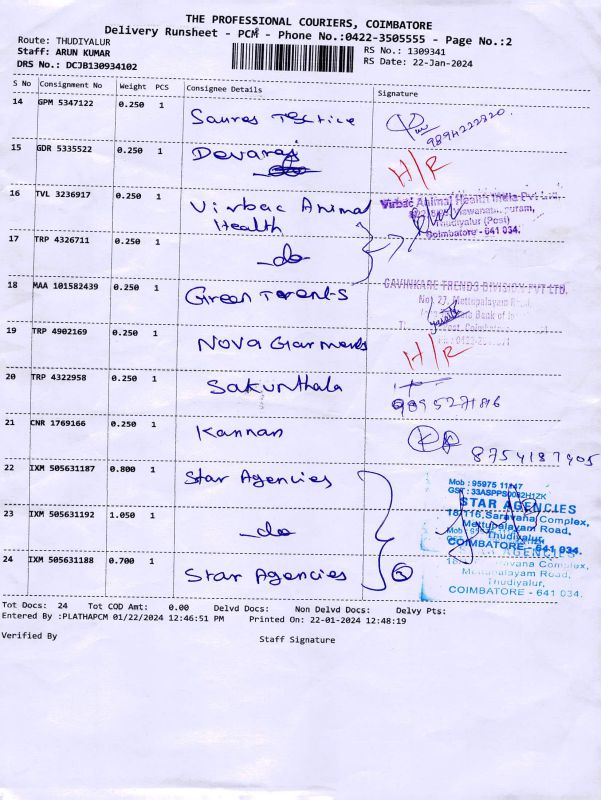 THE PROFESSIONAL COURIERS, COIMBATORE
Delivery Runsheet - PCM - Phone No.:0422-3505555 - Page No.:2
Route: THUDIYALUR
RS No.: 1309341
Staff: ARUN KUMAR
RS Date: 22-Jan-2024
DRS No.: DCJB130934102
S No Consignment No Weight PCS Consignee Details Signature
14 GPM 5347122 0.250 1
9894222820
15 GDR 5335522 0.250 1 Devaraj H/R
16 TVL 3236917 0.250 1 Virbac Animal Health
Virbac Animal Health India Pvt
Thudiyalur (Post)
Coimbatore - 641 034.
17 TRP 4326711 0.250 1 -do-
18 MAA 101582439 0.250 1 Green Trends
CAVINKARE TRENDS DIVISION PVT LTD.
No. 27, Mettupalayam Road,
Bank of
19 TRP 4902169 0.250 1 Nova Garments H/R
20 TRP 4322958 0.250 1 Sakunthala
21 CNR 1769166 0.250 1 Kannan
8754187905
22 IXM 505631187 0.800 1 Star Agencies
Mob : 95975 11147
STAR AGENCIES
18/116, Saravana Complex,
Mettupalayam Road,
Thudiyalur,
COIMBATORE - 641 034.
23 IXM 505631192 1.050 1 -do-
24 IXM 505631188 0.700 1 Star Agencies
Saravana Complex,
Mettupalayam Road,
Thudiyalur,
COIMBATORE - 641 034.
Tot Docs: 24 Tot COD Amt: 0.00 Delvd Docs: Non Delvd Docs: Delvy Pts:
Entered By :PLATHAPCM 01/22/2024 12:46:51 PM Printed On: 22-01-2024 12:48:19
Verified By Staff Signature